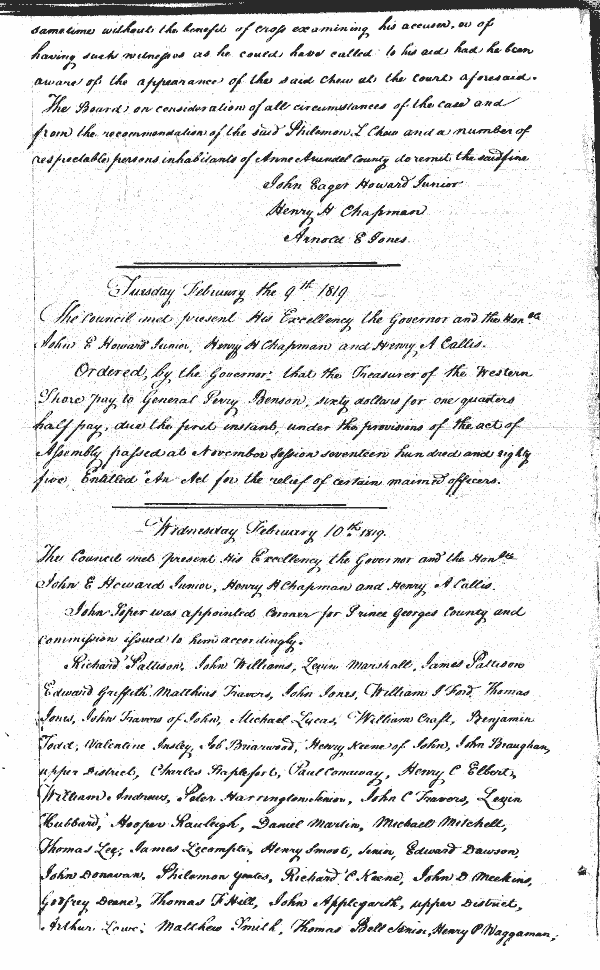 sametime without the benefit of cross examining his accuser, or of
having such witnesses as he could have called to his aid had he been
aware of the appearance of the said Chew at the court aforesaid.
The Board on consideration of all circumstances of the case and
from the recommendation of the said Philemon L Chew and a number of
respectable persons inhabitants of Anne Arundel County do remit the said fine
John Eager Howard Junior
Henry H Chapman
Arnold E Jones.
Tuesday February the 9th 1819
The Council met present His Excellency the Governor and the Honble
John E Howard Junior, Henry H Chapman and Henry A Callis.
Ordered, by the Governor, that the Treasurer of the Western
Shore pay to General Perry Benson, sixty dollars for one quarters
half pay, due the first instant, under the provisions of the act of
Assembly passed at November Session seventeen hundred and eighty
five, Entitled "An Act for the relief of certain maimed officers.
Wednesday February 10th 1819.
The Council met present His Excellency the Governor and the Honble
John E Howard Junior, Henry H Chapman and Henry A Callis.
John Soper was appointed Coroner for Prince Georges County and
commission issued to him accordingly.
Richard Pattison, John Williams, Levin Marshall, James Pattison
Edward Griffith, Matthias Travers, John Jones, William J Ford, Thomas
Jones, John Travers of John, Michael Lucas, William Craft, Benjamin
Todd, Valentine Insley, Job Briarwood, Henry Keene of John, John Braughan,
upper District, Charles Staplefort, Paul Conaway, Henry C Elbert,
William Andrews, Peter Harrington Senior, John C Travers, Levin
Hubbard, Hooper Rawleigh, Daniel Martin, Michael Mitchell,
Thomas Lee, James Lecompte, Henry Smoot, Senior, Edward Dawson,
John Donavan, Philemon Yeates, Richard C Keene, John D Meekins,
Godfrey Deane, Thomas F Hill, John Applegarth, upper District,
Arthur Lowe, Matthew Smith, Thomas Bell Senior, Henry P Waggaman,